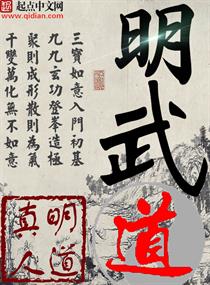 起点中文网
www.qidian.com
明武道
三寶如意入門初基
九九玄功登峯造極
聚則成形散則為氣
千變萬化無不如意
明道真人